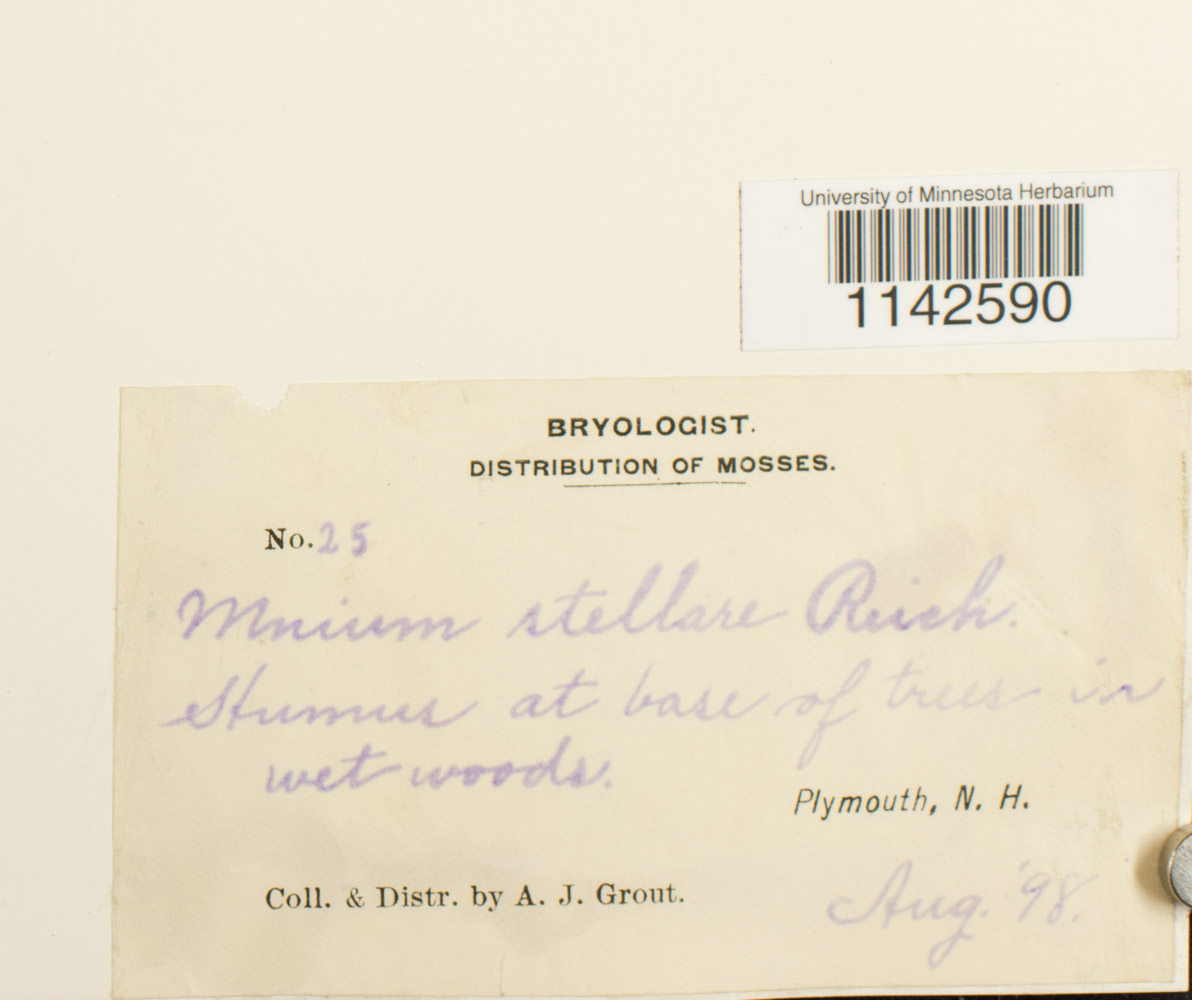 University of Minnesota Herbarium
1142590
BRYOLOGIST.
DISTRIBUTION OF MOSSES.
No. 25
Mnium stellare Reich.
Humus at base of trees in
wet woods.
Plymouth, N. H.
Coll. & Distr. by A. J. Grout.
Aug. '98.